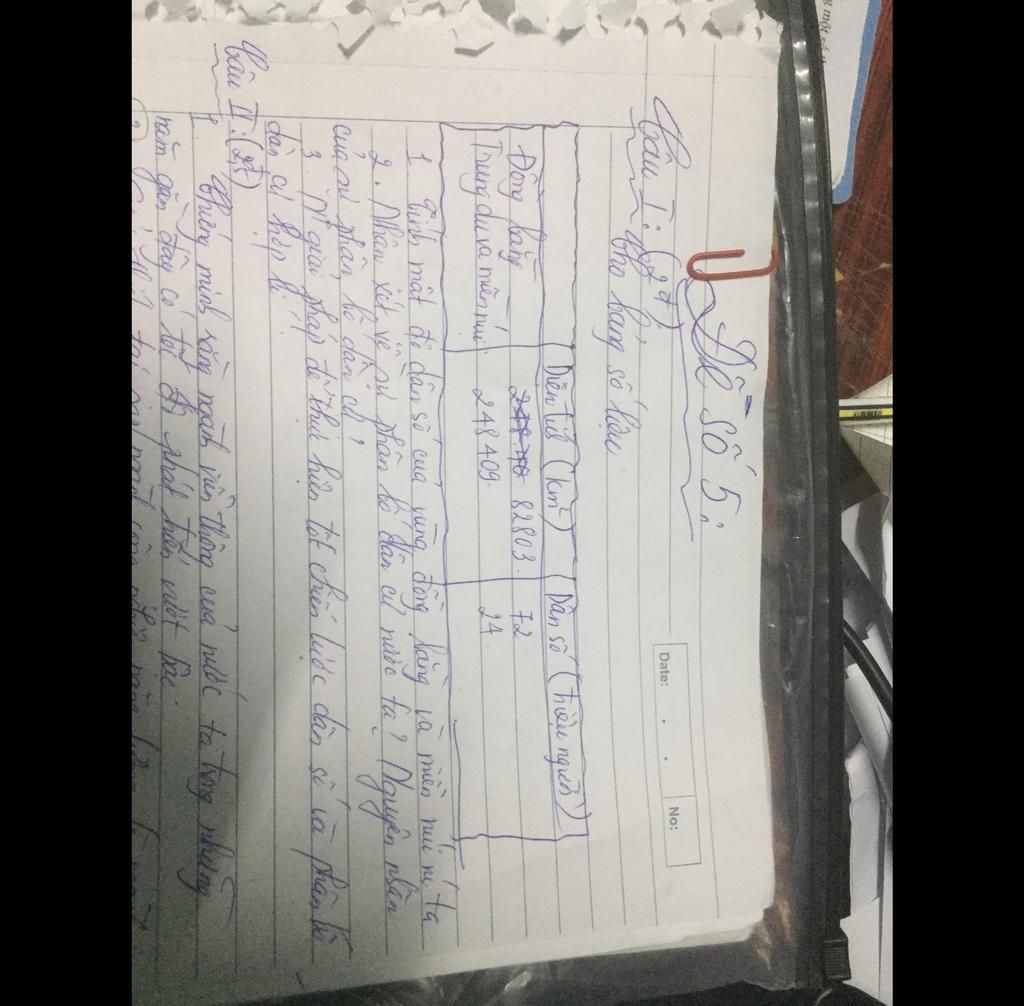 Đề số 5:
Date:
No:
Câu I: (2đ) Cho bảng số liệu
Diện tích (km²) Dân số (triệu người)
Đồng bằng 82803. 72
Trung du và miền núi. 248409. 24.
1. Tính mật độ dân số của vùng đồng bằng và miền núi nc ta
2. Nhận xét về sự phân bố dân cư nước ta? Nguyên nhân
của sự phân bố dân cư?
3. giải pháp để thực hiện tốt chiến lược dân số và phân bố
dân cư hợp lí?
Câu II: (2,5đ)
1. Chứng minh rằng ngành viễn thông của nước ta trong những
năm gần đây có tốc độ phát triển vượt bậc.